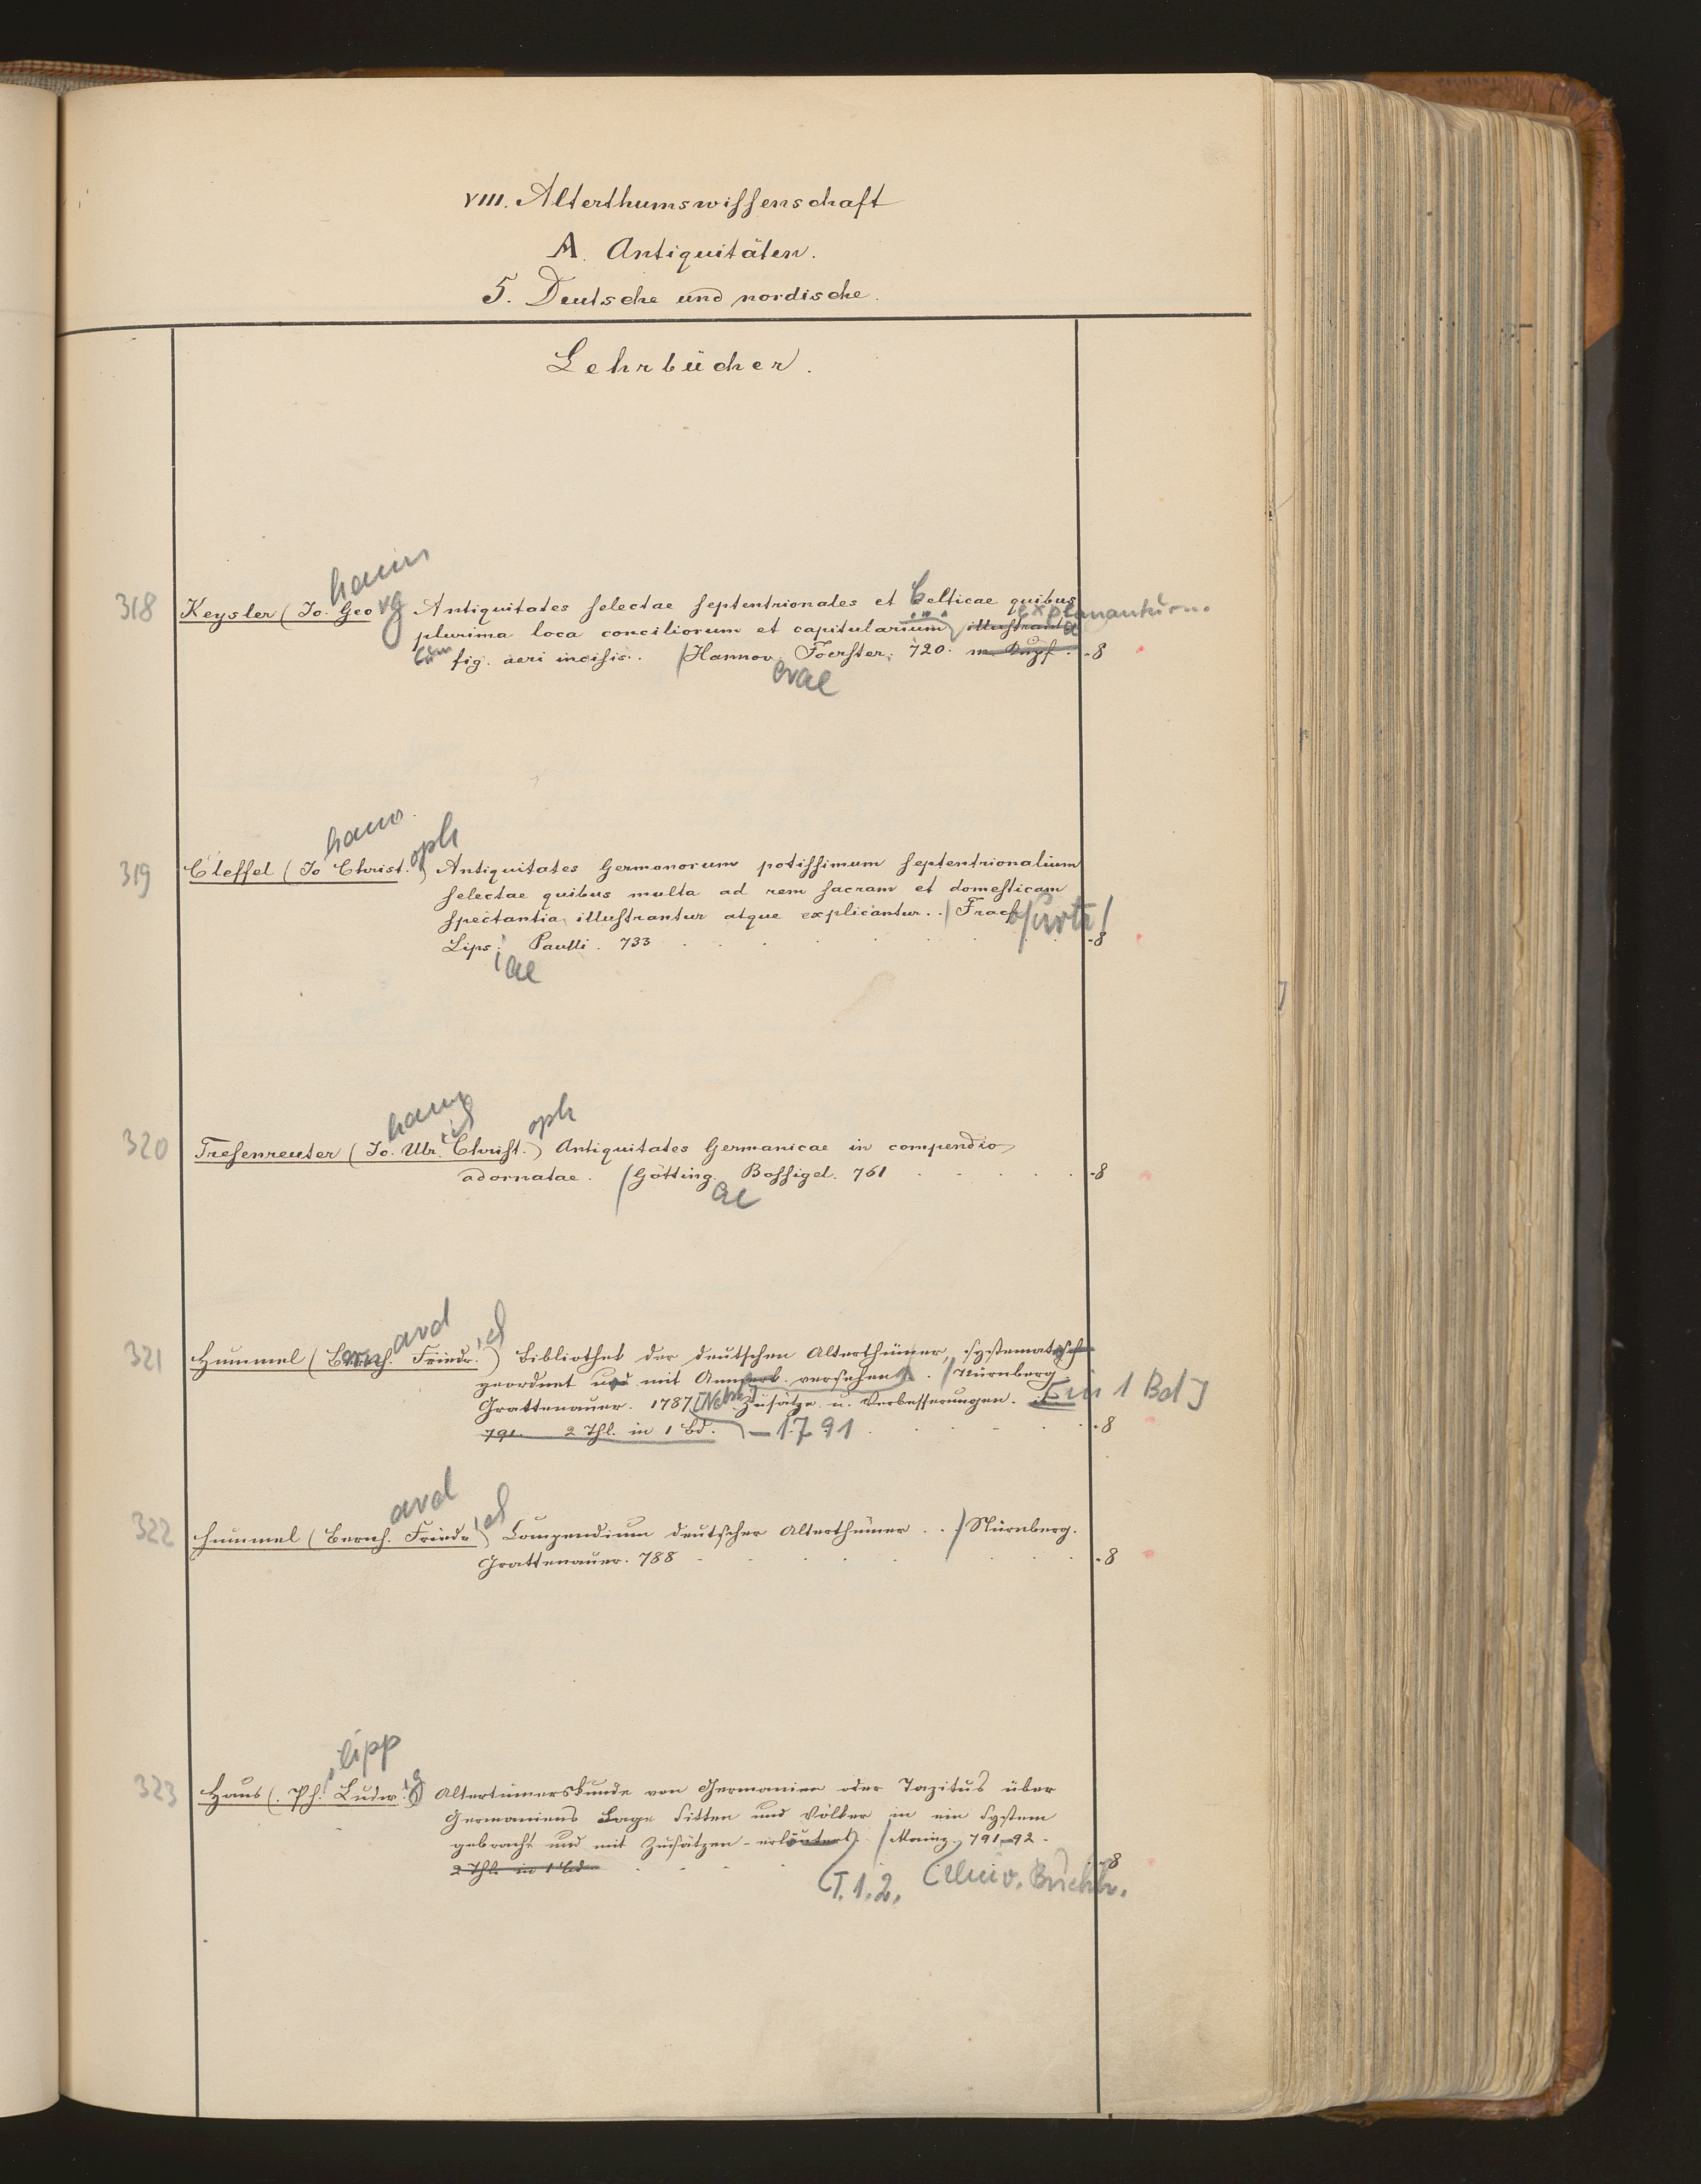 VIII. Alterthumswissenschaft
A. Antiquitäten.
5. Deutsche und nordische.
Lehrbücher.
hann
318 Keysler (Jo. Georg Antiquitates selectae septentrionales et Celticae quibus
plurima loca conciliorum et capitularium illustrant explanantur.
Cum fig. aeri incisis. / Hannov. Foerster. 720. m. Kupf. -8
erae
hann oph
319 Cleffel (Jo Christ.) Antiquitates Germanorum potissimum septentrionalium
selectae quibus multa ad rem sacram et domesticam
spectantia illustrantur atque explicantur. . / Fracf
Lips. Paulli. 733 -8
iae
hann ich oph
320 Tresenreuter (Jo. Ulr. Christ.) Antiquitates Germanicae in compendio
adornatae. / Götting. Bossigel. 761 -8
ae
ard ich
321 Hummel (Bernh. Friedr.) Bibliothek der deutschen Alterthümer, systematisch
geordnet und mit Anmerk. versehen. / Nürnberg.
Grattenauer. 1787 [Nebst] Zusätze u. Verbesserungen. [in 1 Bd]
791. 2 Thl. in 1 Bd. – 1791 -8
ard ich
322 Hummel (Bernh. Friedr.) Compendium deutscher Alterthümer . . / Nürnberg.
Grattenauer. 788 -8
ilipp
323 Haus (Ph. Ludw.ig) Altertümerskunde von Germanien oder Tazitus über
Germaniens Lage Sitten und Völker in ein System
gebracht und mit Zusätzen erläutert. / Mainz. 791–92.
2 Thl. in 1 Bd. -8
(T. 1. 2. (Univ. Buchh.